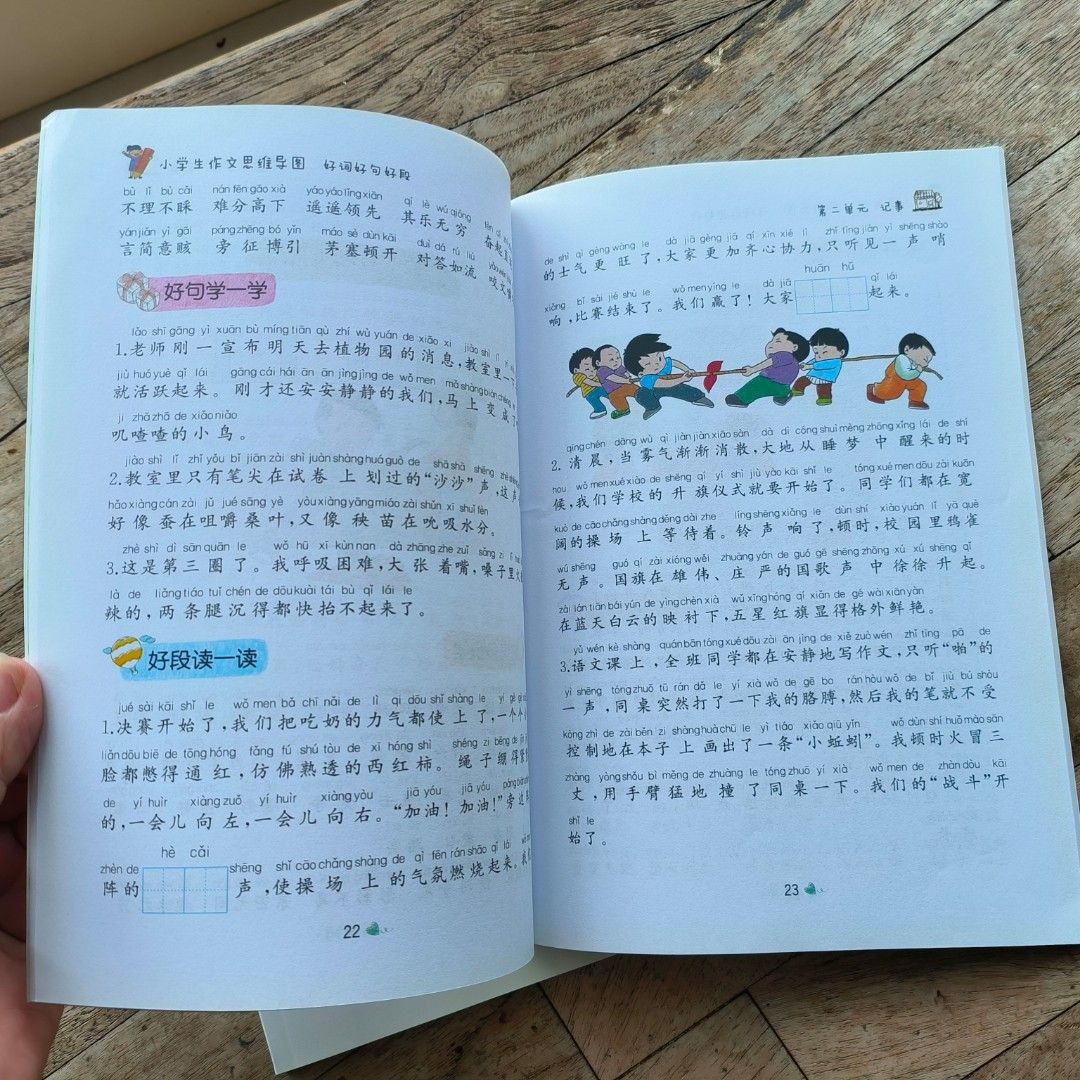 小学生作文思维导图 好词好句好段
bù lǐ bù cǎi nán fēn gāo xià yáo yáo lǐng xiān qí lè wú qióng
不理不睬 难分高下 遥遥领先 其乐无穷
yán jiǎn yì gāi páng zhēng bó yǐn máo sè dùn kāi duì dá rú liú
言简意赅 旁征博引 茅塞顿开 对答如流
好句学一学
lǎo shī gāng yì xuān bù míng tiān qù zhí wù yuán de xiāo xi jiào shì lǐ
1.老师刚一宣布明天去植物园的消息,教室里一
jiù huó yuè qǐ lái gāng cái hái ān ān jìng jìng de wǒ men mǎ shàng biàn chéng
就活跃起来。刚才还安安静静的我们,马上变成
jī zhā zhā de xiǎo niǎo
叽喳喳的小鸟。
jiào shì lǐ zhǐ yǒu bǐ jiān zài shì juàn shàng huá guò de shā shā shēng
2.教室里只有笔尖在试卷上划过的“沙沙”声,这声
hǎo xiàng cán zài jǔ jué sāng yè yòu xiàng yāng miáo zài shǔn xī shuǐ fèn
好像蚕在咀嚼桑叶,又像秧苗在吮吸水分。
zhè shì dì sān quān le wǒ hū xī kùn nan dà zhāng zhe zuǐ sǎng zi lǐ
3.这是第三圈了。我呼吸困难,大张着嘴,嗓子里
là de liǎng tiáo tuǐ chén de dōu kuài tái bù qǐ lái le
辣的,两条腿沉得都快抬不起来了。
好段读一读
jué sài kāi shǐ le wǒ men bǎ chī nǎi de lì qì dōu shǐ shàng le yí gè
1.决赛开始了,我们把吃奶的力气都使上了,一个个
liǎn dōu biē de tōng hóng fǎng fú shú tòu de xī hóng shì shéng zi bēng de
脸都憋得通红,仿佛熟透的西红柿。绳子绷得
de yí huìr xiàng zuǒ yí huìr xiàng yòu jiā yóu jiā yóu
的,一会儿向左,一会儿向右。“加油！加油！”旁边
hè cǎi
zhèn de shēng shǐ cāo chǎng shàng de qì fēn rán shāo qǐ lái
阵的 声,使操场上的气氛燃烧起来。
22
第二单元 记事
de shì qì gèng wàng le dà jiā gèng jiā qí xīn xié lì zhǐ tīng jiàn yì shēng shào
的士气更旺了,大家更加齐心协力,只听见一声哨
huān hū
xiǎng bǐ sài jié shù le wǒ men yíng le dà jiā qǐ lái
响,比赛结束了。我们赢了！大家 起来。
qīng chén dāng wù qì jiàn jiàn xiāo sàn dà dì cóng shuì mèng zhōng xǐng lái de shí
2.清晨,当雾气渐渐消散,大地从睡梦中醒来的时
hou wǒ men xué xiào de shēng qí yí shì jiù yào kāi shǐ le tóng xué men dōu zài kuān
候,我们学校的升旗仪式就要开始了。同学们都在宽
kuò de cāo chǎng shàng děng dài zhe líng shēng xiǎng le dùn shí xiào yuán lǐ yā què
阔的操场上等待着。铃声响了,顿时,校园里鸦雀
wú shēng guó qí zài xióng wěi zhuāng yán de guó gē shēng zhōng xú xú shēng qǐ
无声。国旗在雄伟、庄严的国歌声中徐徐升起。
zài lán tiān bái yún de yìng chèn xià wǔ xīng hóng qí xiǎn de gé wài xiān yàn
在蓝天白云的映衬下,五星红旗显得格外鲜艳。
yǔ wén kè shàng quán bān tóng xué dōu zài ān jìng de xiě zuò wén zhǐ tīng pā de
3.语文课上,全班同学都在安静地写作文,只听“啪”的
yì shēng tóng zhuō tū rán dǎ le yí xià wǒ de gē bo rán hòu wǒ de bǐ jiù bú shòu
一声,同桌突然打了一下我的胳膊,然后我的笔就不受
kòng zhì de zài běn zi shàng huà chū le yì tiáo xiǎo qiū yǐn wǒ dùn shí huǒ mào sān
控制地在本子上画出了一条“小蚯蚓”。我顿时火冒三
zhàng yòng shǒu bì měng de zhuàng le tóng zhuō yí xià wǒ men de zhàn dòu kāi
丈,用手臂猛地撞了同桌一下。我们的“战斗”开
shǐ le
始了。
23